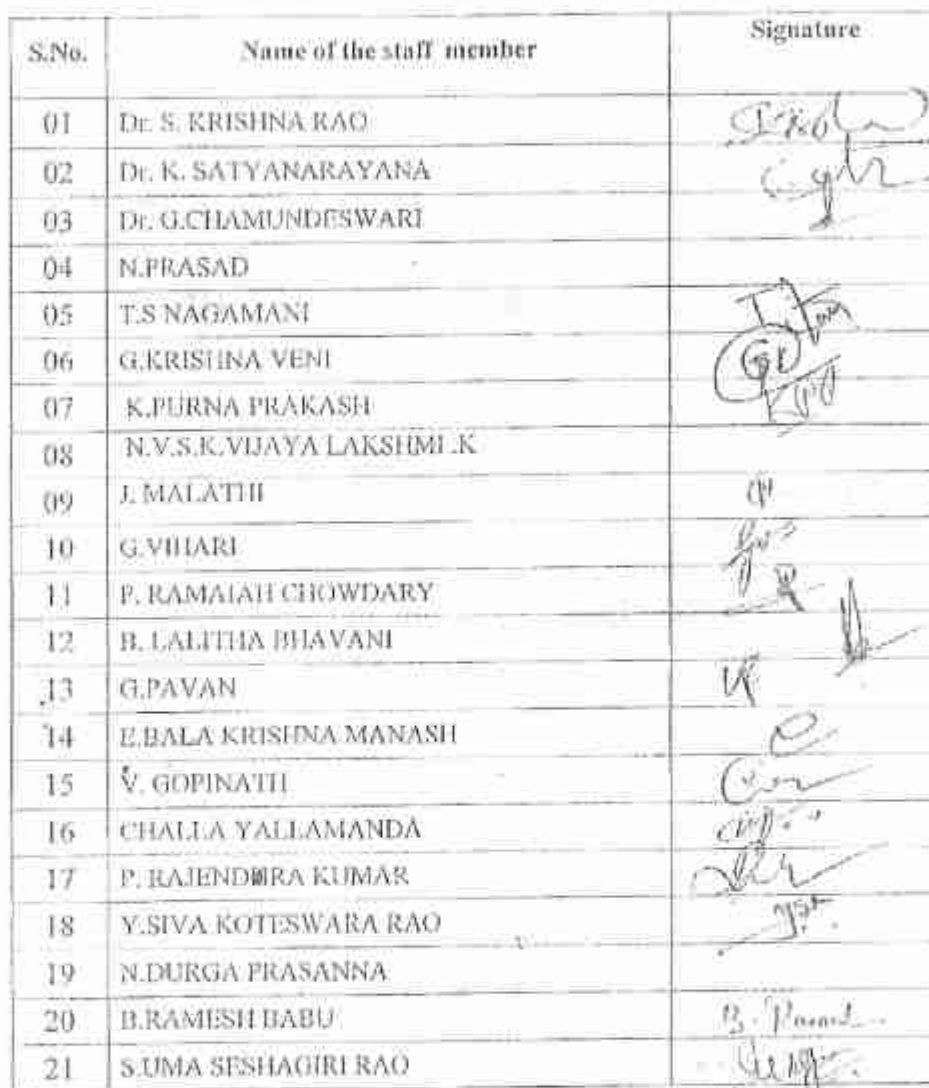 S.No. Name of the staff member Signature
01 Dr. S. KRISHNA RAO
02 Dr. K. SATYANARAYANA
03 Dr. G.CHAMUNDESWARI
04 N.PRASAD
05 T.S NAGAMANI
06 G.KRISHNA VENI
07 K.PURNA PRAKASH
08 N.V.S.K.VIJAYA LAKSHMI .K
09 J. MALATHI
10 G.VIHARI
11 P. RAMAIAH CHOWDARY
12 B. LALITHA BHAVANI
13 G.PAVAN
14 E.BALA KRISHNA MANASH
15 V. GOPINATH
16 CHALLA YALLAMANDA
17 P. RAJENDRA KUMAR
18 Y.SIVA KOTESWARA RAO
19 N.DURGA PRASANNA
20 B.RAMESH BABU
21 S.UMA SESHAGIRI RAO